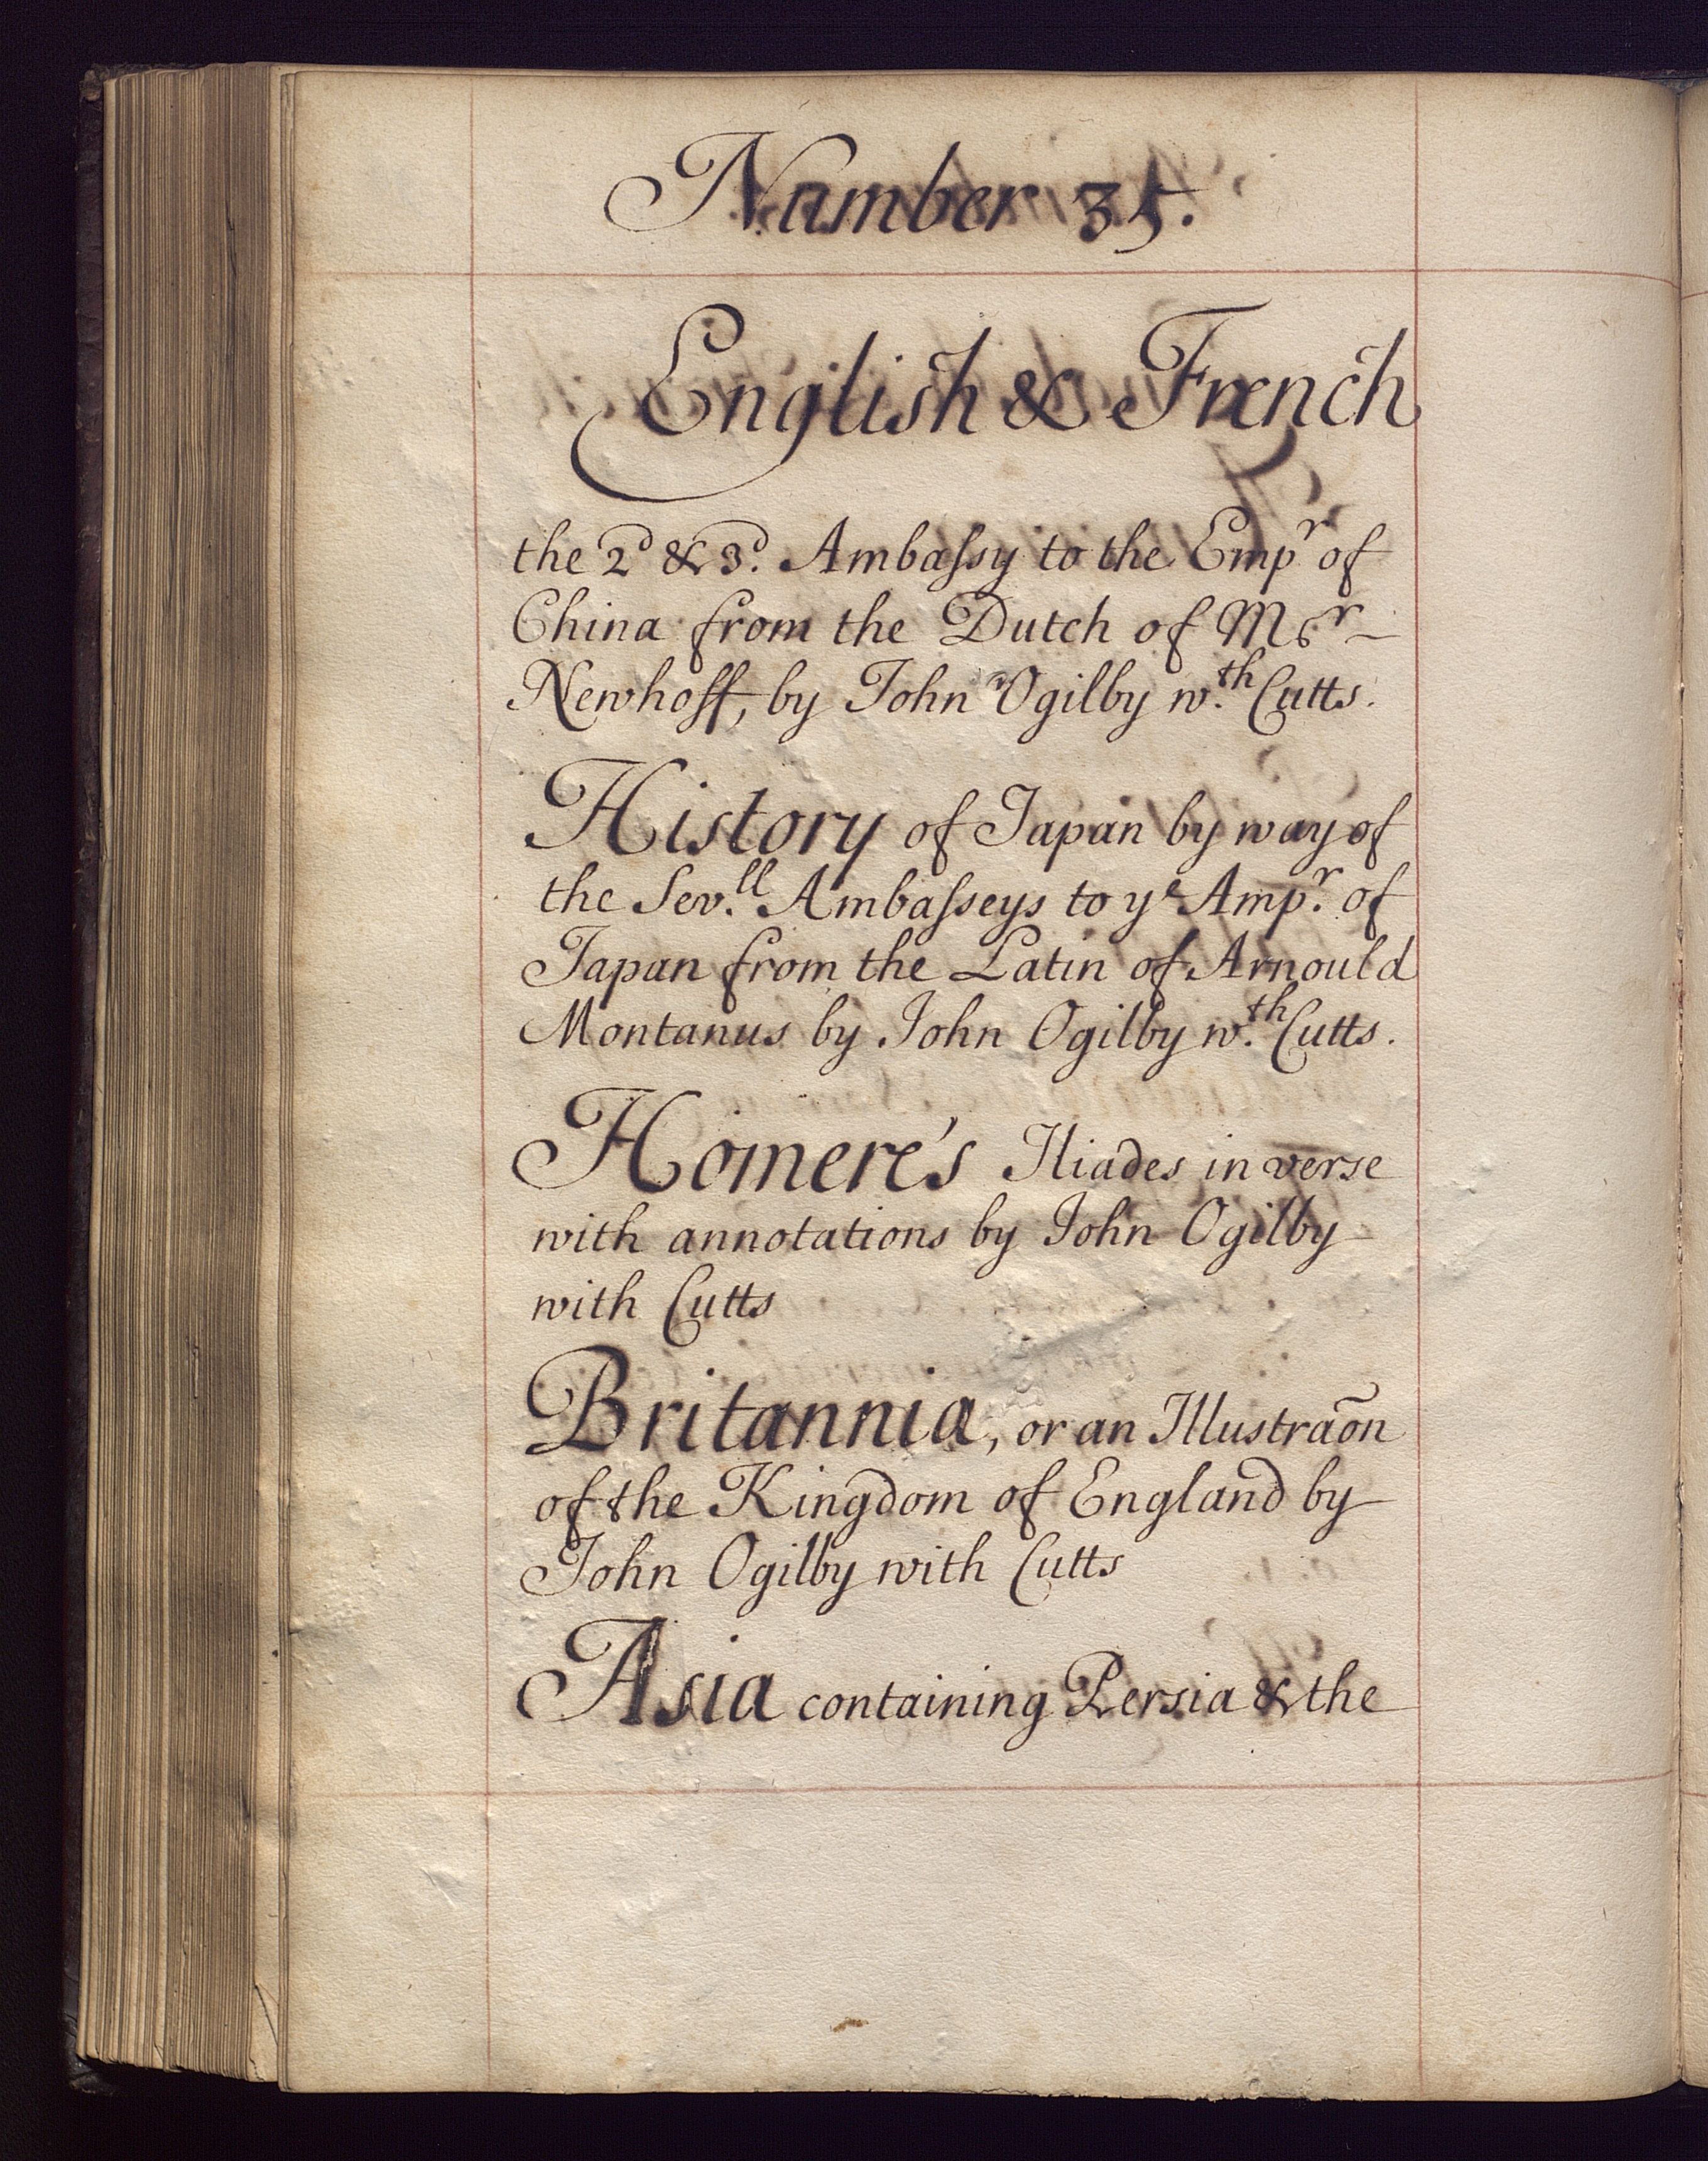 Number 35.
English & French
the 2d & 3d. Ambaſsy to the Empr of
China from the Dutch of Mr
Newhoff, by John Ogilby w.th Cutts.
History of Japan by way of
the Sev.ll Ambaſseys to ye Ampr. of
Japan from the Latin of Arnould
Montanus by John Ogilby w.th Cutts.
Homere's Iliades in verse
with annotations by John Ogilby
with Cutts
Britannia, or an Illustraõn
of the Kingdom of England by
John Ogilby with Cutts
Asia containing Persia & the